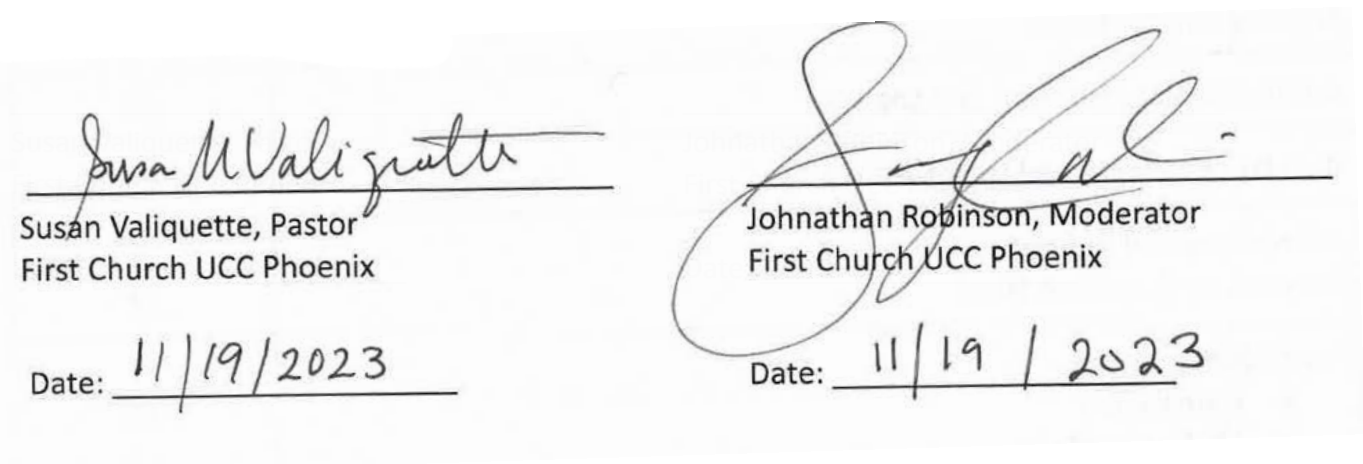 Susa M Valiquette
Susan Valiquette, Pastor
First Church UCC Phoenix
Date: 11/19/2023
Johnathan Robinson, Moderator
First Church UCC Phoenix
Date: 11/19/2023